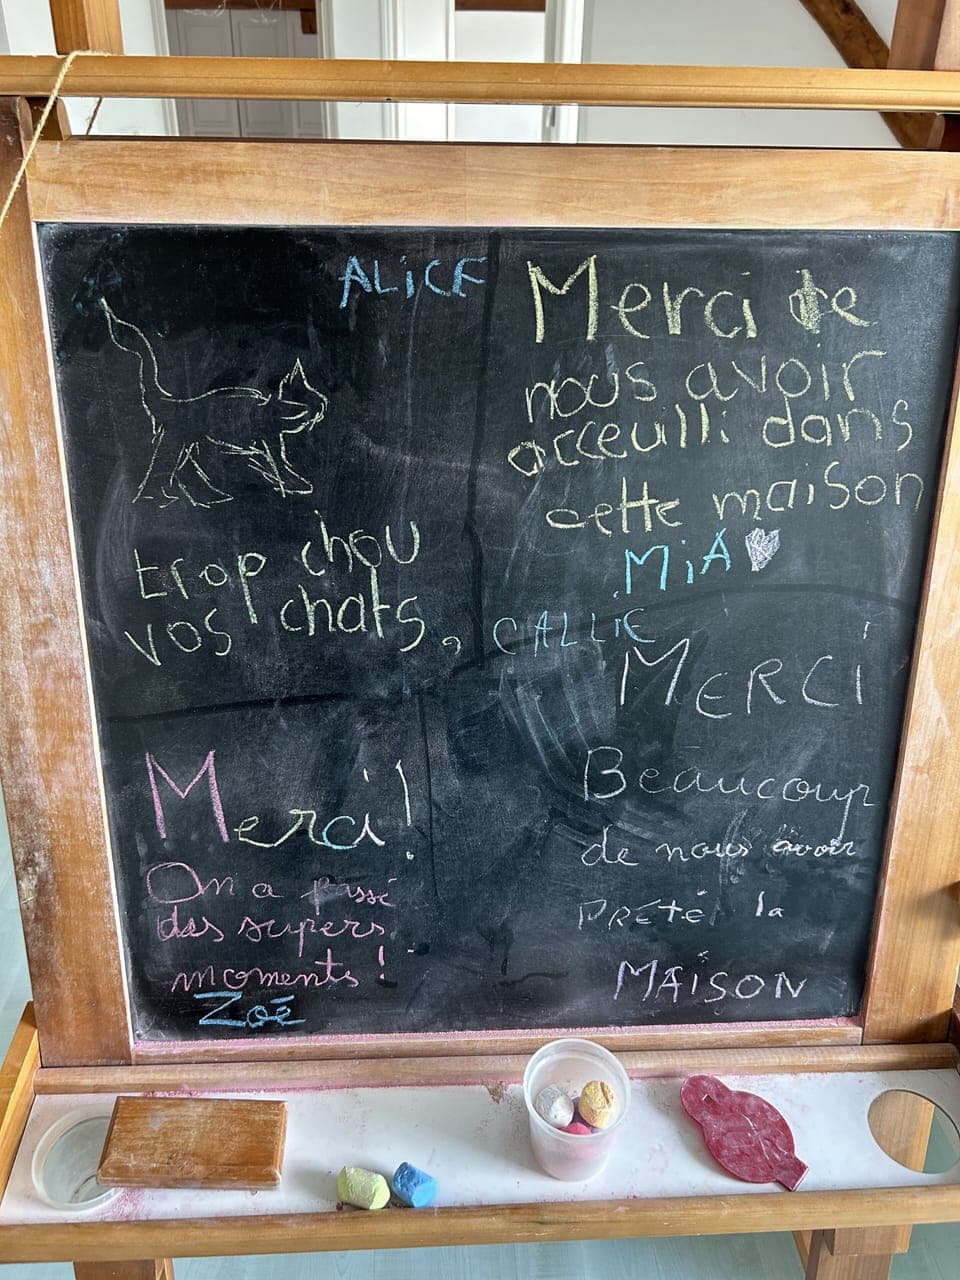 ALiCE
trop chou
vos chats,
Merci de
nous avoir
acceuilli dans
cette maison
MiA
CALLIE
MERCi
Beaucoup
de nous avoir
PRETé la
MAiSON
Merci!
On a passé
des supers
moments!
Zoé